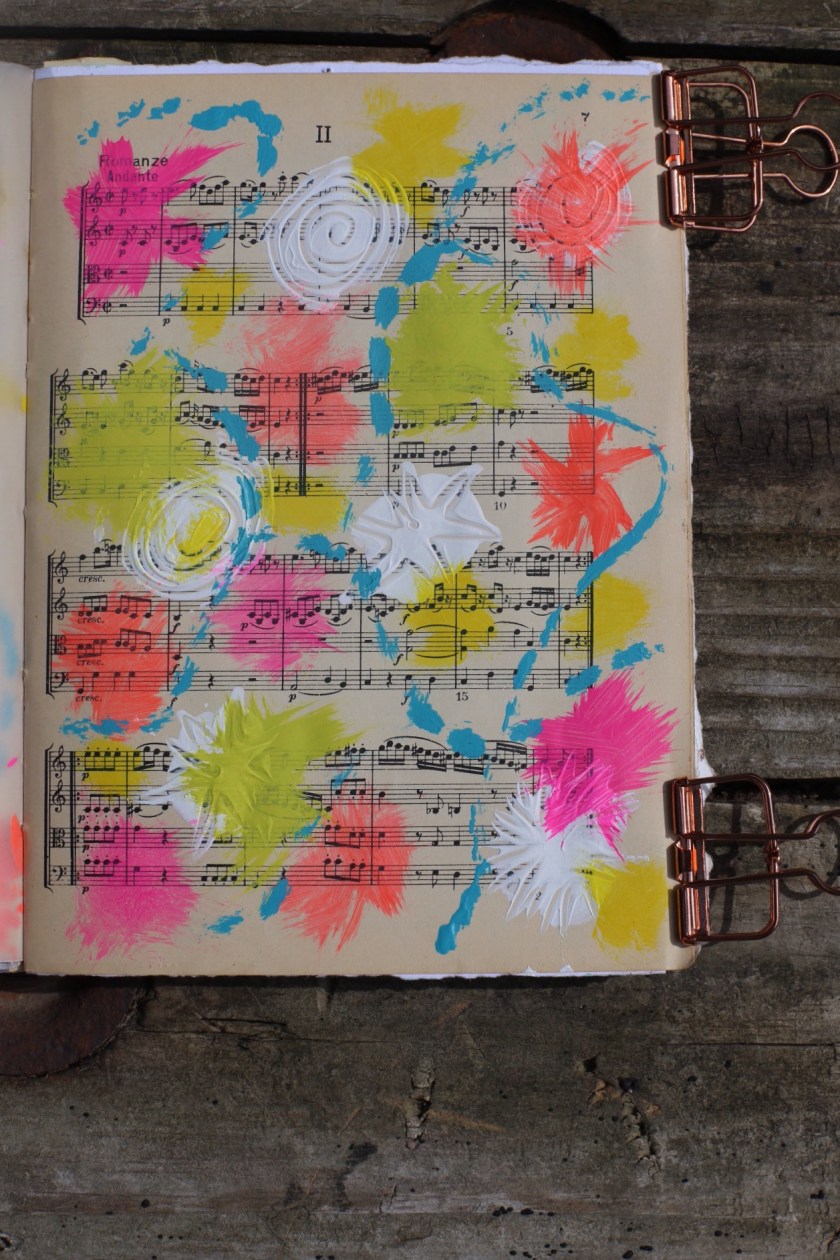 7
II
Romanze
Andante
p
p
p
f
5
p
p
p
10
cresc.
cresc.
p
f
cresc.
f
f
cresc.
p
15
p
p
p
p
2